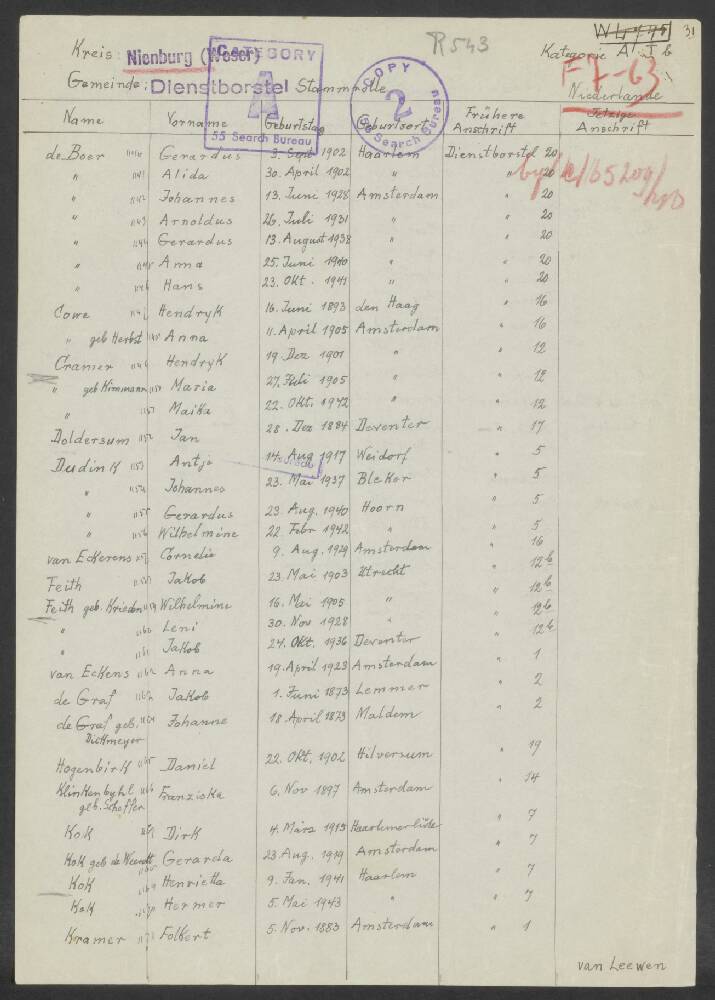 31
Kreis: Nienburg (Weser) R543 Kategorie A I b
CATEGORY A
55 Search Bureau
COPY 2
Search Bureau
F7-63
Gemeinde: Dienstborstel Stammrolle Niederlande
Name Vorname Geburtstag Geburtsort Frühere Anschrift Jetzige Anschrift
de Boer Gerardus 3. Sept 1902 Haarlem Dienstborstel 20
" Alida 30. April 1902 " " 20
" Johannes 13. Juni 1928 Amsterdam " 20
" Arnoldus 26. Juli 1931 " " 20
" Gerardus 13. August 1938 " " 20
" Anna 25. Juni 1940 " " 20
" Hans 23. Okt. 1941 " " 20
Cowe Hendryk 16. Juni 1893 den Haag " 16
" geb Herbst Anna 11. April 1905 Amsterdam " 16
Cramer Hendryk 19. Dez 1901 " " 12
" geb Maria 27. Juli 1905 " " 12
" Maika 22. Okt. 1942 " " 12
Doldersum Jan 28. Dez 1884 Deventer " 17
Dudink Antje 14. Aug 1917 Weidorf " 5
" Johannes 23. Mai 1937 Bleker " 5
" Gerardus 23. Aug. 1940 Hoorn " 5
" Wilhelmine 22. Febr 1942 " " 5
van Eckerens Cornelie 9. Aug. 1929 Amsterdam " 16
Feith Jakob 23. Mai 1903 Utrecht " 12 b
Feith geb. Krieden Wilhelmine 16. Mai 1905 " " 12 b
" Leni 30. Nov 1928 " " 12 b
" Jakob 24. Okt. 1936 Deventer " 12 b
van Eckens Anna 19. April 1923 Amsterdam " 1
de Graf Jakob 1. Juni 1873 Lemmer " 2
de Graf geb. Dickmeyer Johanne 18 April 1873 Maldem " 2
Hogenbirk Daniel 22. Okt. 1902 Hilversum " 19
Klinkenbyhl geb. Scheffer Franziska 6. Nov 1897 Amsterdam " 14
Kok Dirk 4. März 1915 " 7
Kok geb de Weerdt Gerarda 23. Aug. 1919 Amsterdam " 7
Kok Henrietta 9. Jan. 1941 Haarlem " 7
Kok Hermer 5. Mai 1943 " " 7
Kramer Folkert 5. Nov. 1883 Amsterdam " 1
van Leewen